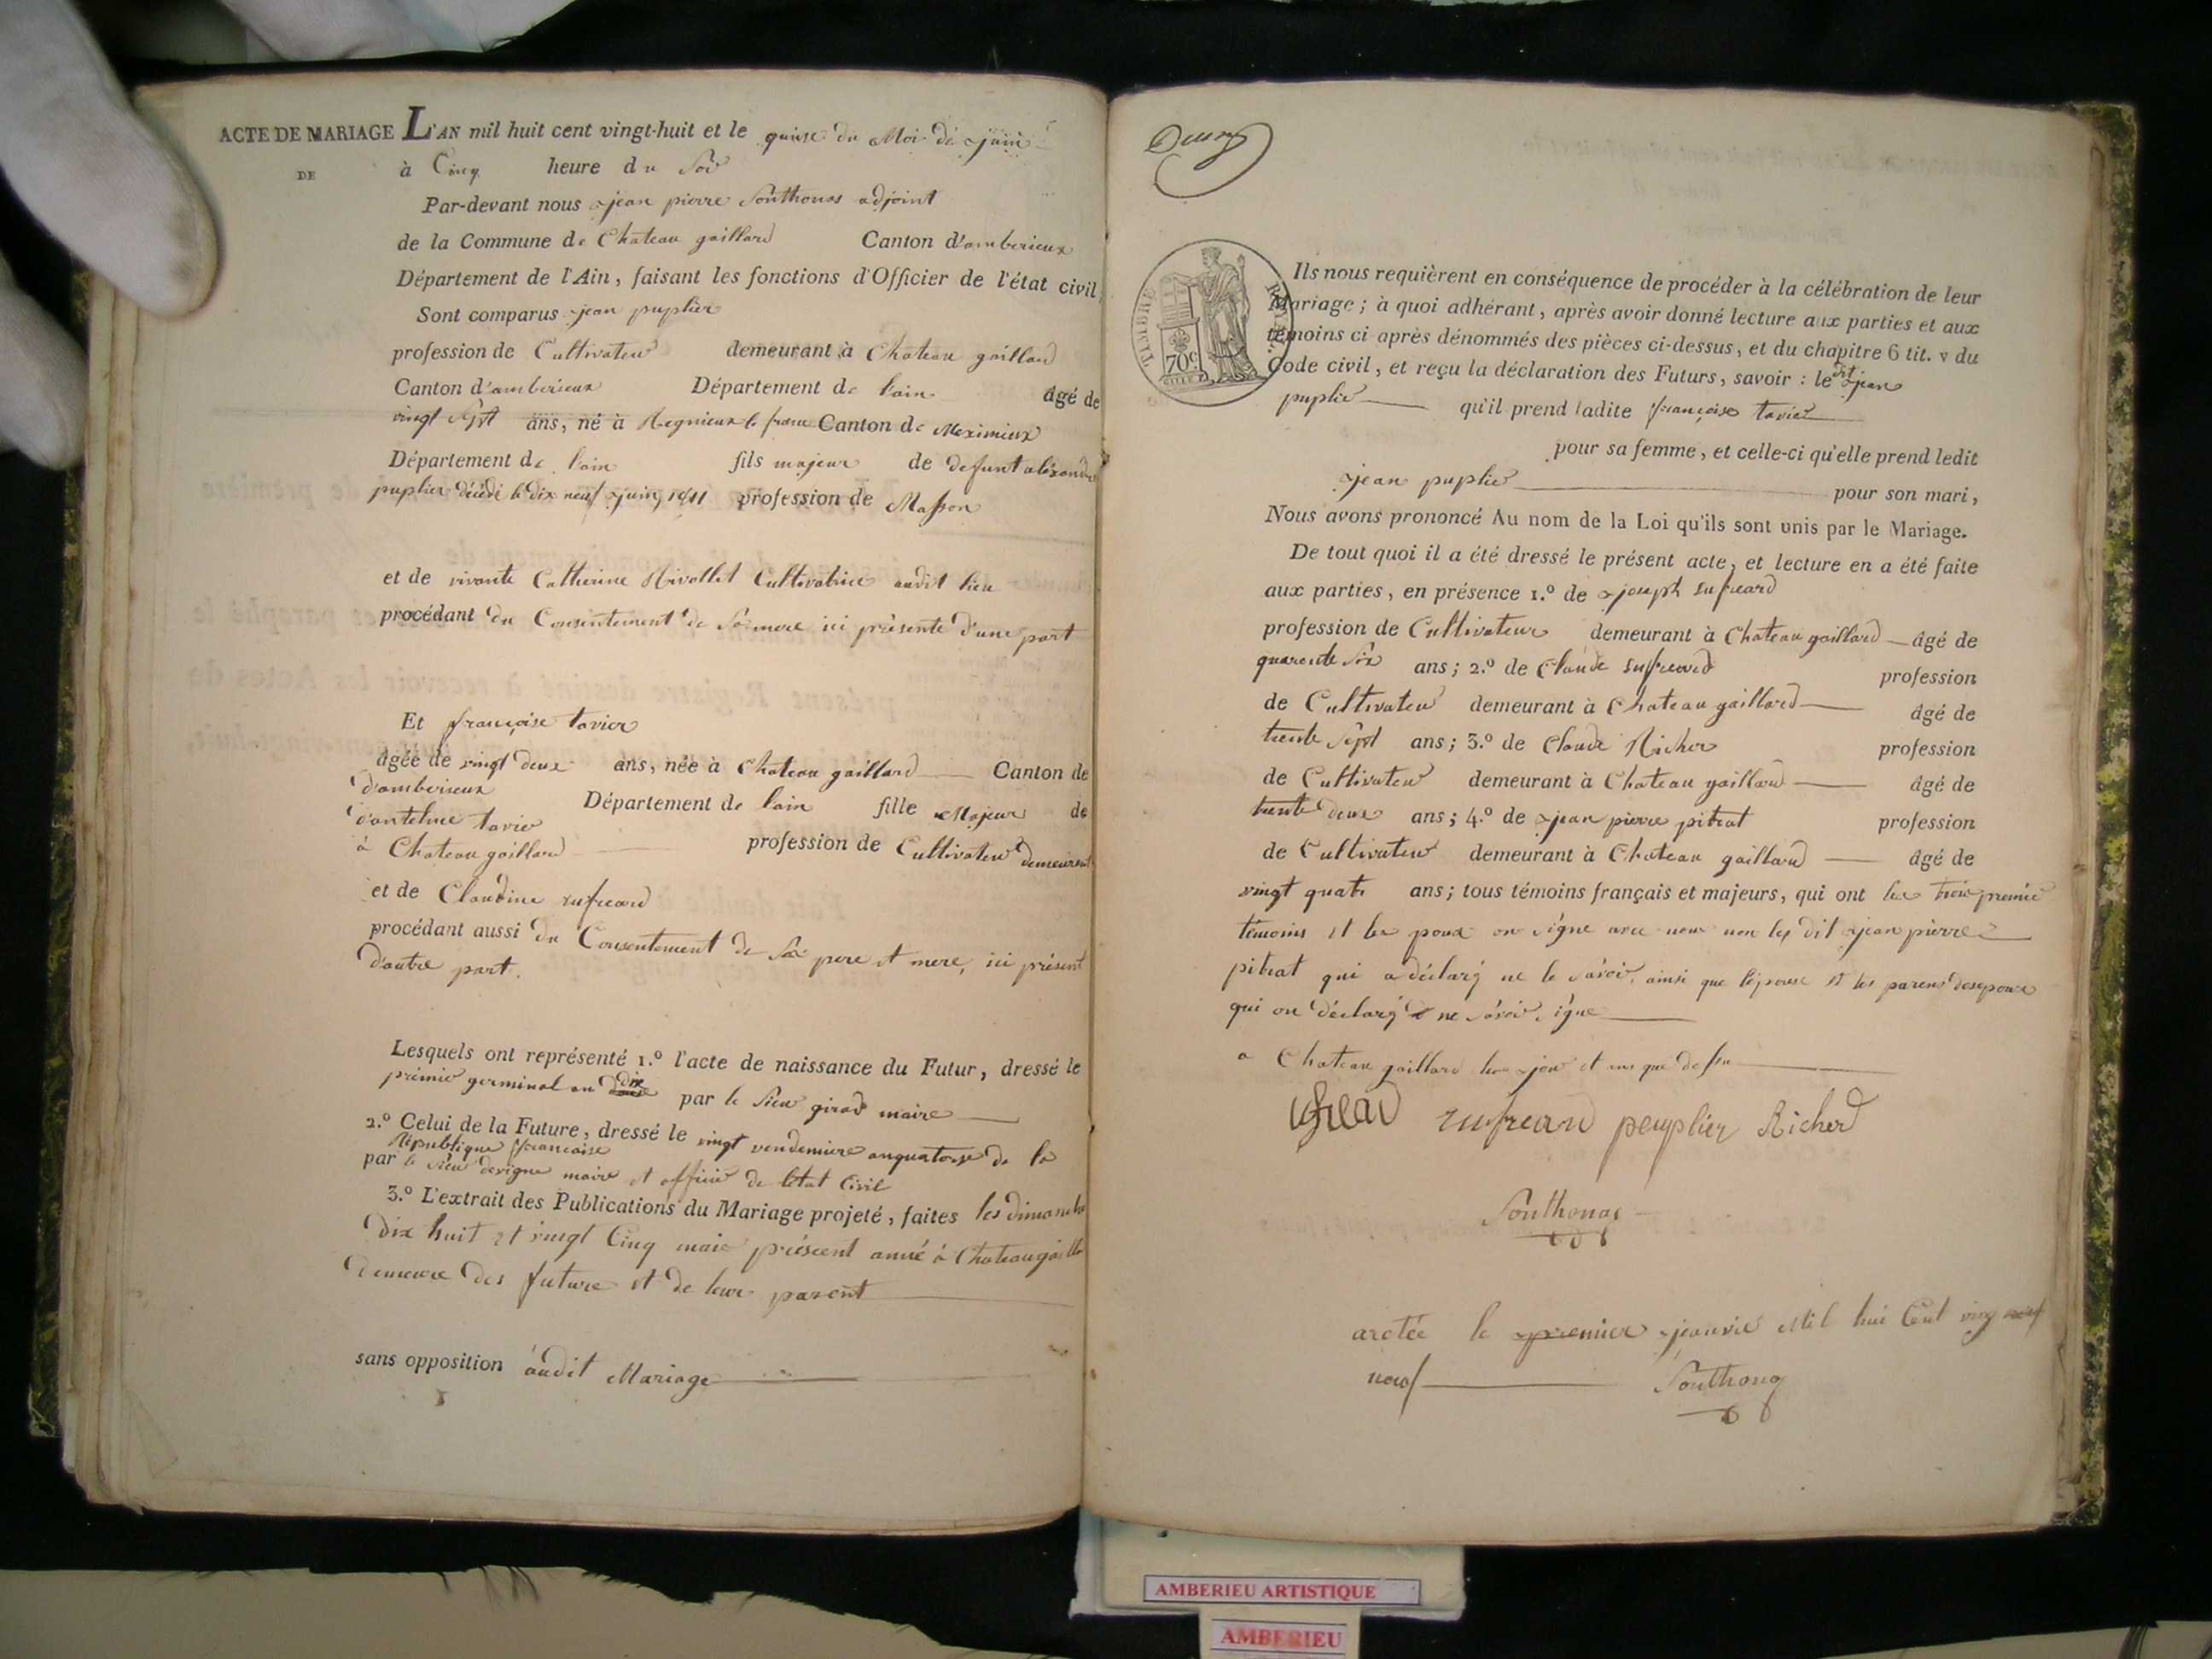 ACTE DE MARIAGE L'AN mil huit cent vingt-huit et le quinse du Moi de juin
DE
à Cinq heure du Soir
Par-devant nous jean pierre Sonthonas adjoint
de la Commune de Chateau gaillard Canton d'amberieux
Département de l'Ain, faisant les fonctions d'Officier de l'état civil
Sont comparus jean puplier
profession de Cultivateur demeurant à Chateau gaillard
Canton d'amberieux Département de l'ain âgé de
vingt sept ans, né à Regnieux le franc Canton de Meximieux
Département de l'ain fils majeur de defunt aléxandre
puplier décédé le dix neuf juin 1811 profession de Masson
et de vivante Catherine Rivollet Cultivatrice audit lieu
procédant du Consentement de Sa mere ici présente d'une part
Et françoise tavier
âgée de vingt deux ans, née à Chateau gaillard Canton de
d'amberieux Département de l'ain fille Majeur de
d'antelme tavier
à Chateau gaillard profession de Cultivateur demeurant
et de Claudine sufreard
procédant aussi du Consentement de Ses pere et mere, ici présent
d'autre part.
Lesquels ont représenté 1.º l'acte de naissance du Futur, dressé le
premier germinal an dix par le Sieur girod maire
2.º Celui de la Future, dressé le vingt vendemiere an quatorse de la
République francaise
par le Sieur devigne maire et officier de l'état Civil
3.º L'extrait des Publications du Mariage projeté, faites les dimanche
dix huit et vingt Cinq mai présent anné à Chateau gaillar
demeure des future et de leur parent
sans opposition audit Mariage
TIMBRE ROYAL
70c.
Ils nous requièrent en conséquence de procéder à la célébration de leur
Mariage; à quoi adhérant, après avoir donné lecture aux parties et aux
témoins ci après dénommés des pièces ci-dessus, et du chapitre 6 tit. v du
Code civil, et reçu la déclaration des Futurs, savoir : le dit jean
puplier qu'il prend ladite françoise tavier
pour sa femme, et celle-ci qu'elle prend ledit
jean puplier pour son mari,
Nous avons prononcé Au nom de la Loi qu'ils sont unis par le Mariage.
De tout quoi il a été dressé le présent acte, et lecture en a été faite
aux parties, en présence 1.º de joseph sufreard
profession de Cultivateur demeurant à Chateau gaillard âgé de
quarente six ans; 2.º de Claude sufreard profession
de Cultivateur demeurant à Chateau gaillard âgé de
trente sept ans; 3.º de Claude Richer profession
de Cultivateur demeurant à Chateau gaillard âgé de
trente deux ans; 4.º de jean pierre pitrat profession
de Cultivateur demeurant à Chateau gaillard âgé de
vingt quatr ans; tous témoins français et majeurs, qui ont les trois premie
témoins et les poux on signe avec nous non le dit jean pierre
pitrat qui a déclaré ne le Savoir, ainsi que l'épouse et les parens des epoux
qui on déclaré ne Savoir signe
a Chateau gaillard les jour et an que dessu
sufreard peuplier Richerd
Sonthonas
aretée le premier jeanvié Mil hui Cent ving neuf
neuf Sonthonas
AMBERIEU ARTISTIQUE
AMBERIEU